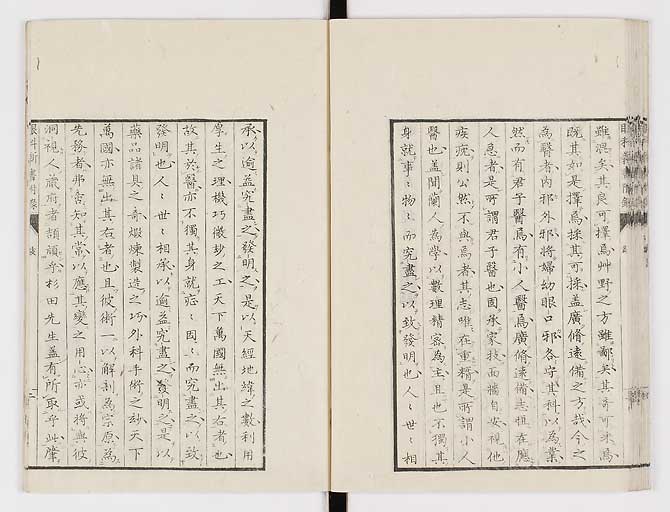 雖混矣其良可擇焉艸野之方雖鄙矣其奇可采焉
既其如是擇焉採其可採蓋廣脩遠備之方哉今之
為醫者內邪外邪將婦幼眼口邪各守其科以為業
然而有君子醫焉有小人醫焉廣脩遠備志恒在應
人急者是所謂君子醫也固承家技面牆自安視他
疾疣則公然不與焉者其志唯在重糈是所謂小人
醫也蓋聞蘭人為學以數理精密為主且也不獨其
身就事々物々而究盡之以致發明也人々世々相
承以逾益究盡之發明之是以天經地緯之數利用
厚生之理機巧微玅之工天下萬國無出其右者也
故其於醫亦不獨其身就症々因々而究盡之以致
發明也人々世々相承以逾益究盡之發明之是以
藥品諸具之奇煅煉製造之巧外科手術之玅天下
萬國亦無出其右者也且彼術一以解剖為宗原為
先務者弗啻知其常以應其變之用心亦或將與彼
洞視人藏府者頡頏乎杉田先生蓋有所取乎此摩
眼科新書附錄